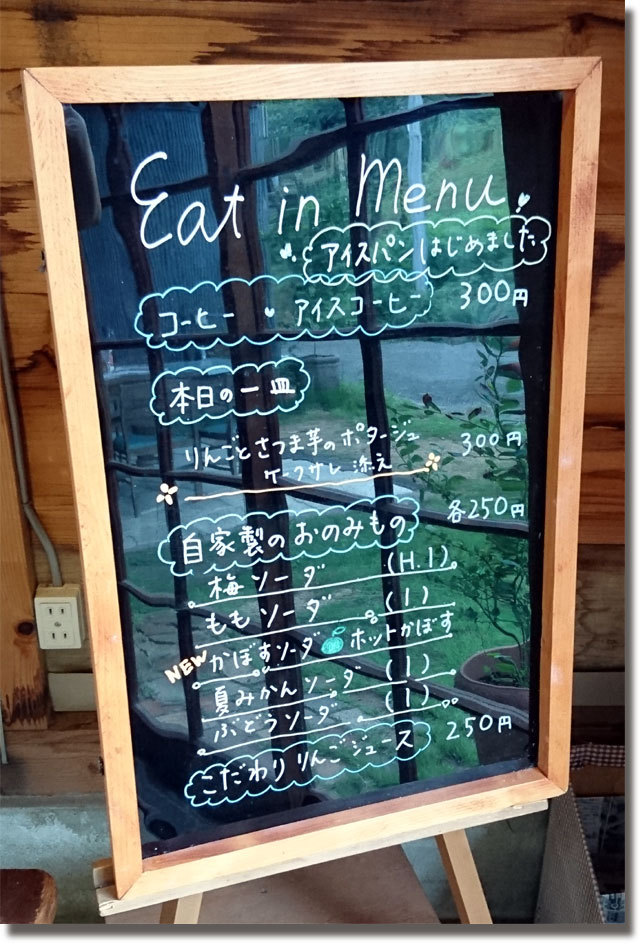 Eat in Menu
アイスパンはじめました
コーヒー アイスコーヒー 300円
本日の一皿
りんごとさつま芋のポタージュ 300円
ケークサレ 添え
自家製のおのみもの 各250円
梅ソーダ (H.I)
ももソーダ (I)
NEW かぼすソーダ ホットかぼす
夏みかんソーダ (I)
ぶどうソーダ (I)
こだわりりんごジュース 250円